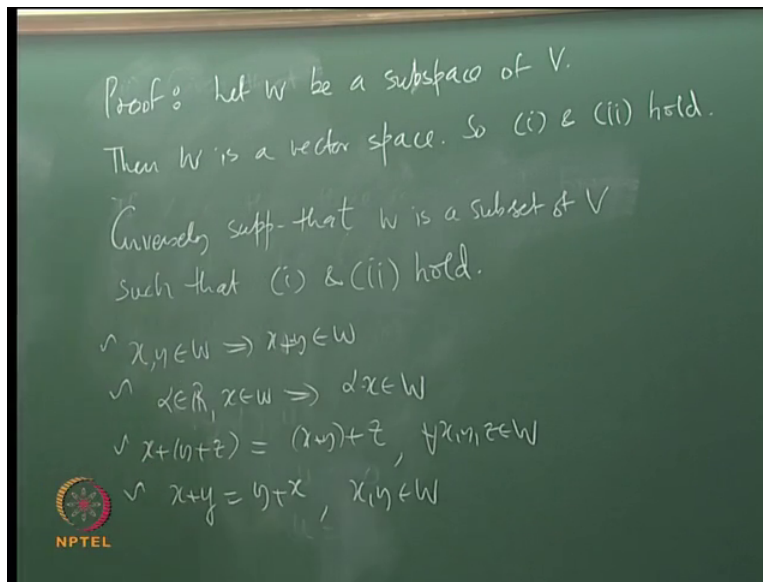 Proof: Let W be a subspace of V.
Then W is a vector space. So (i) & (ii) hold.
Conversely supp. that W is a subset of V
such that (i) & (ii) hold.
✓ x,y∈W ⇒ x+y∈W
✓ α∈ℝ, x∈W ⇒ α·x∈W
✓ x+(y+z) = (x+y)+z, ∀x,y,z∈W
✓ x+y = y+x, x,y∈W
NPTEL